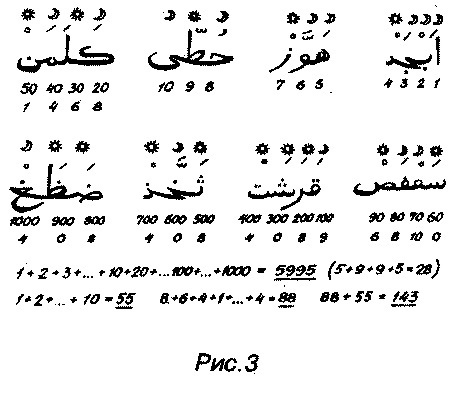 أَبْجَدْ هَوَّزْ حُطِّي كَلَمَنْ
50 40 30 20 10 9 8 7 6 5 4 3 2 1
1 4 6 8
سَعْفَصْ قَرَشَتْ ثَخَّذْ ضَظَغْ
1000 900 800 700 600 500 400 300 200 100 90 80 70 60
4 0 8 4 0 8 4 0 8 9 6 8 10 0
1+2+3+...+10+20+...100+...+1000 = 5995 (5+9+9+5=28)
1+2+...+10=55 8+6+4+1+...+4=88 88+55=143
Рис.3